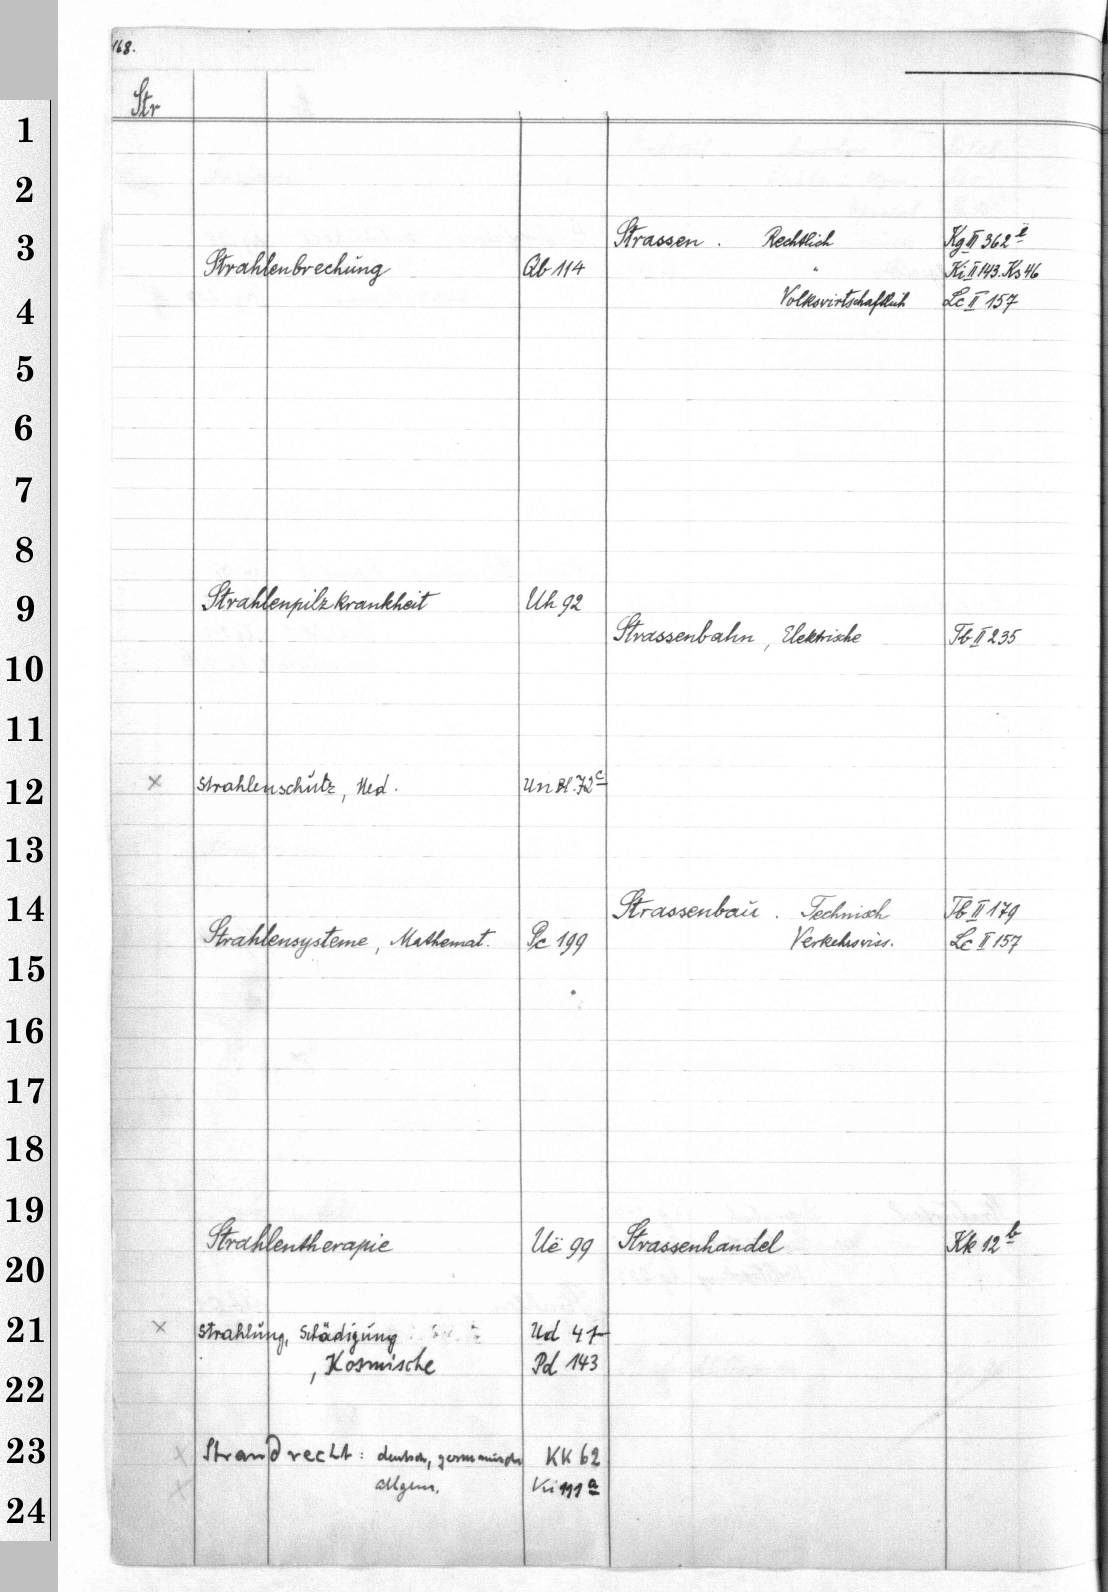 168.
Str
1
2
3
4
5
6
7
8
9
10
11
12
13
14
15
16
17
18
19
20
21
22
23
24
Strahlenbrechung Qb 114
Strahlenpilzkrankheit Uh 92
× Strahlenschutz, Med. Un Bl. 72c
Strahlensysteme, Mathemat. Pc 199
Strahlentherapie Uë 99
× Strahlung, Schädigung Ud 41
, Kosmische Pd 143
× Strandrecht: deutsch, germanisch KK 62
× allgem. Ki 111a
Strassen. Rechtlich Kg II 362
" Ki II 143. Ks 46
Volkswirtschaftlich Lc II 157
Strassenbahn, Elektrische Tb II 235
Strassenbau. Technisch Tb II 179
Verkehrswiss. Lc II 157
Strassenhandel Kk 12b